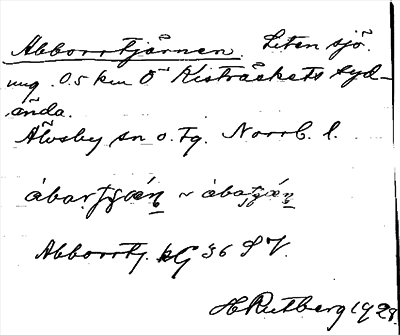 Abborrtjärnen. Liten sjö
ung. 0.5 km Ö Kisträskets syd-
ända.
Älvsby sn o. tg. Norrb. l.
åbartjæn ~ åbatjæn
Abborrtj. kG 36 SV.
H Rutberg 1928.